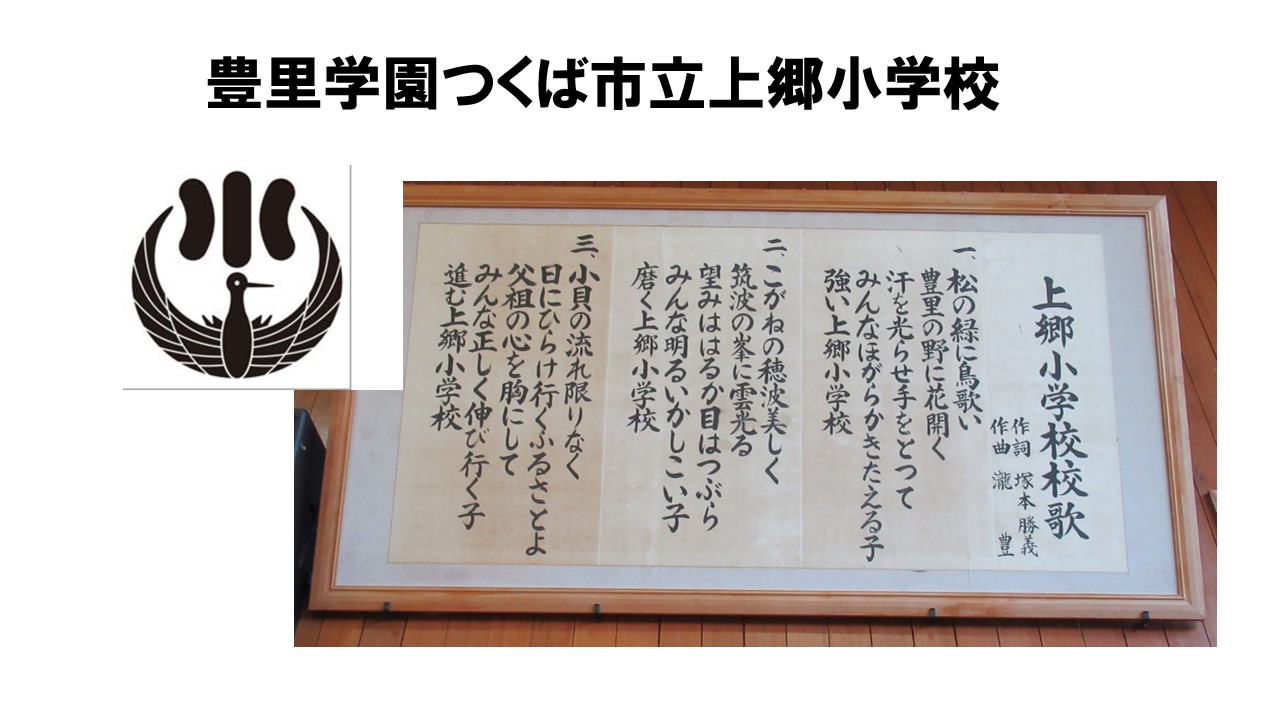 豊里学園つくば市立上郷小学校
小
上郷小学校校歌
作詞 塚本勝義
作曲 瀧 豊
一、松の緑に鳥歌い
豊里の野に花開く
汗を光らせ手をとって
みんなほがらかきたえる子
強い上郷小学校
二、こがねの穂波美しく
筑波の峯に雲光る
望みははるか目はつぶら
みんな明るいかしこい子
磨く上郷小学校
三、小貝の流れ限りなく
日にひらけ行くふるさとよ
父祖の心を胸にして
みんな正しく伸び行く子
進む上郷小学校